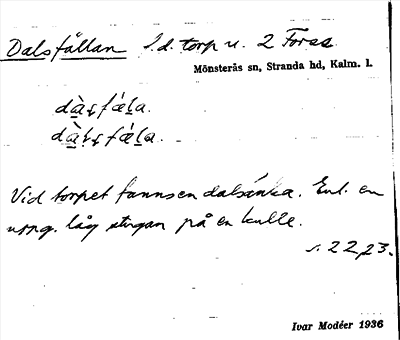 Dalsfällan f.d. torp u. 2 Forsa
Mönsterås sn, Stranda hd, Kalm. l.
Vid torpet fanns en dalsänka. Enl. en
uppg. låg stugan på en kulle.
s. 22, 23.
Ivar Modéer 1936